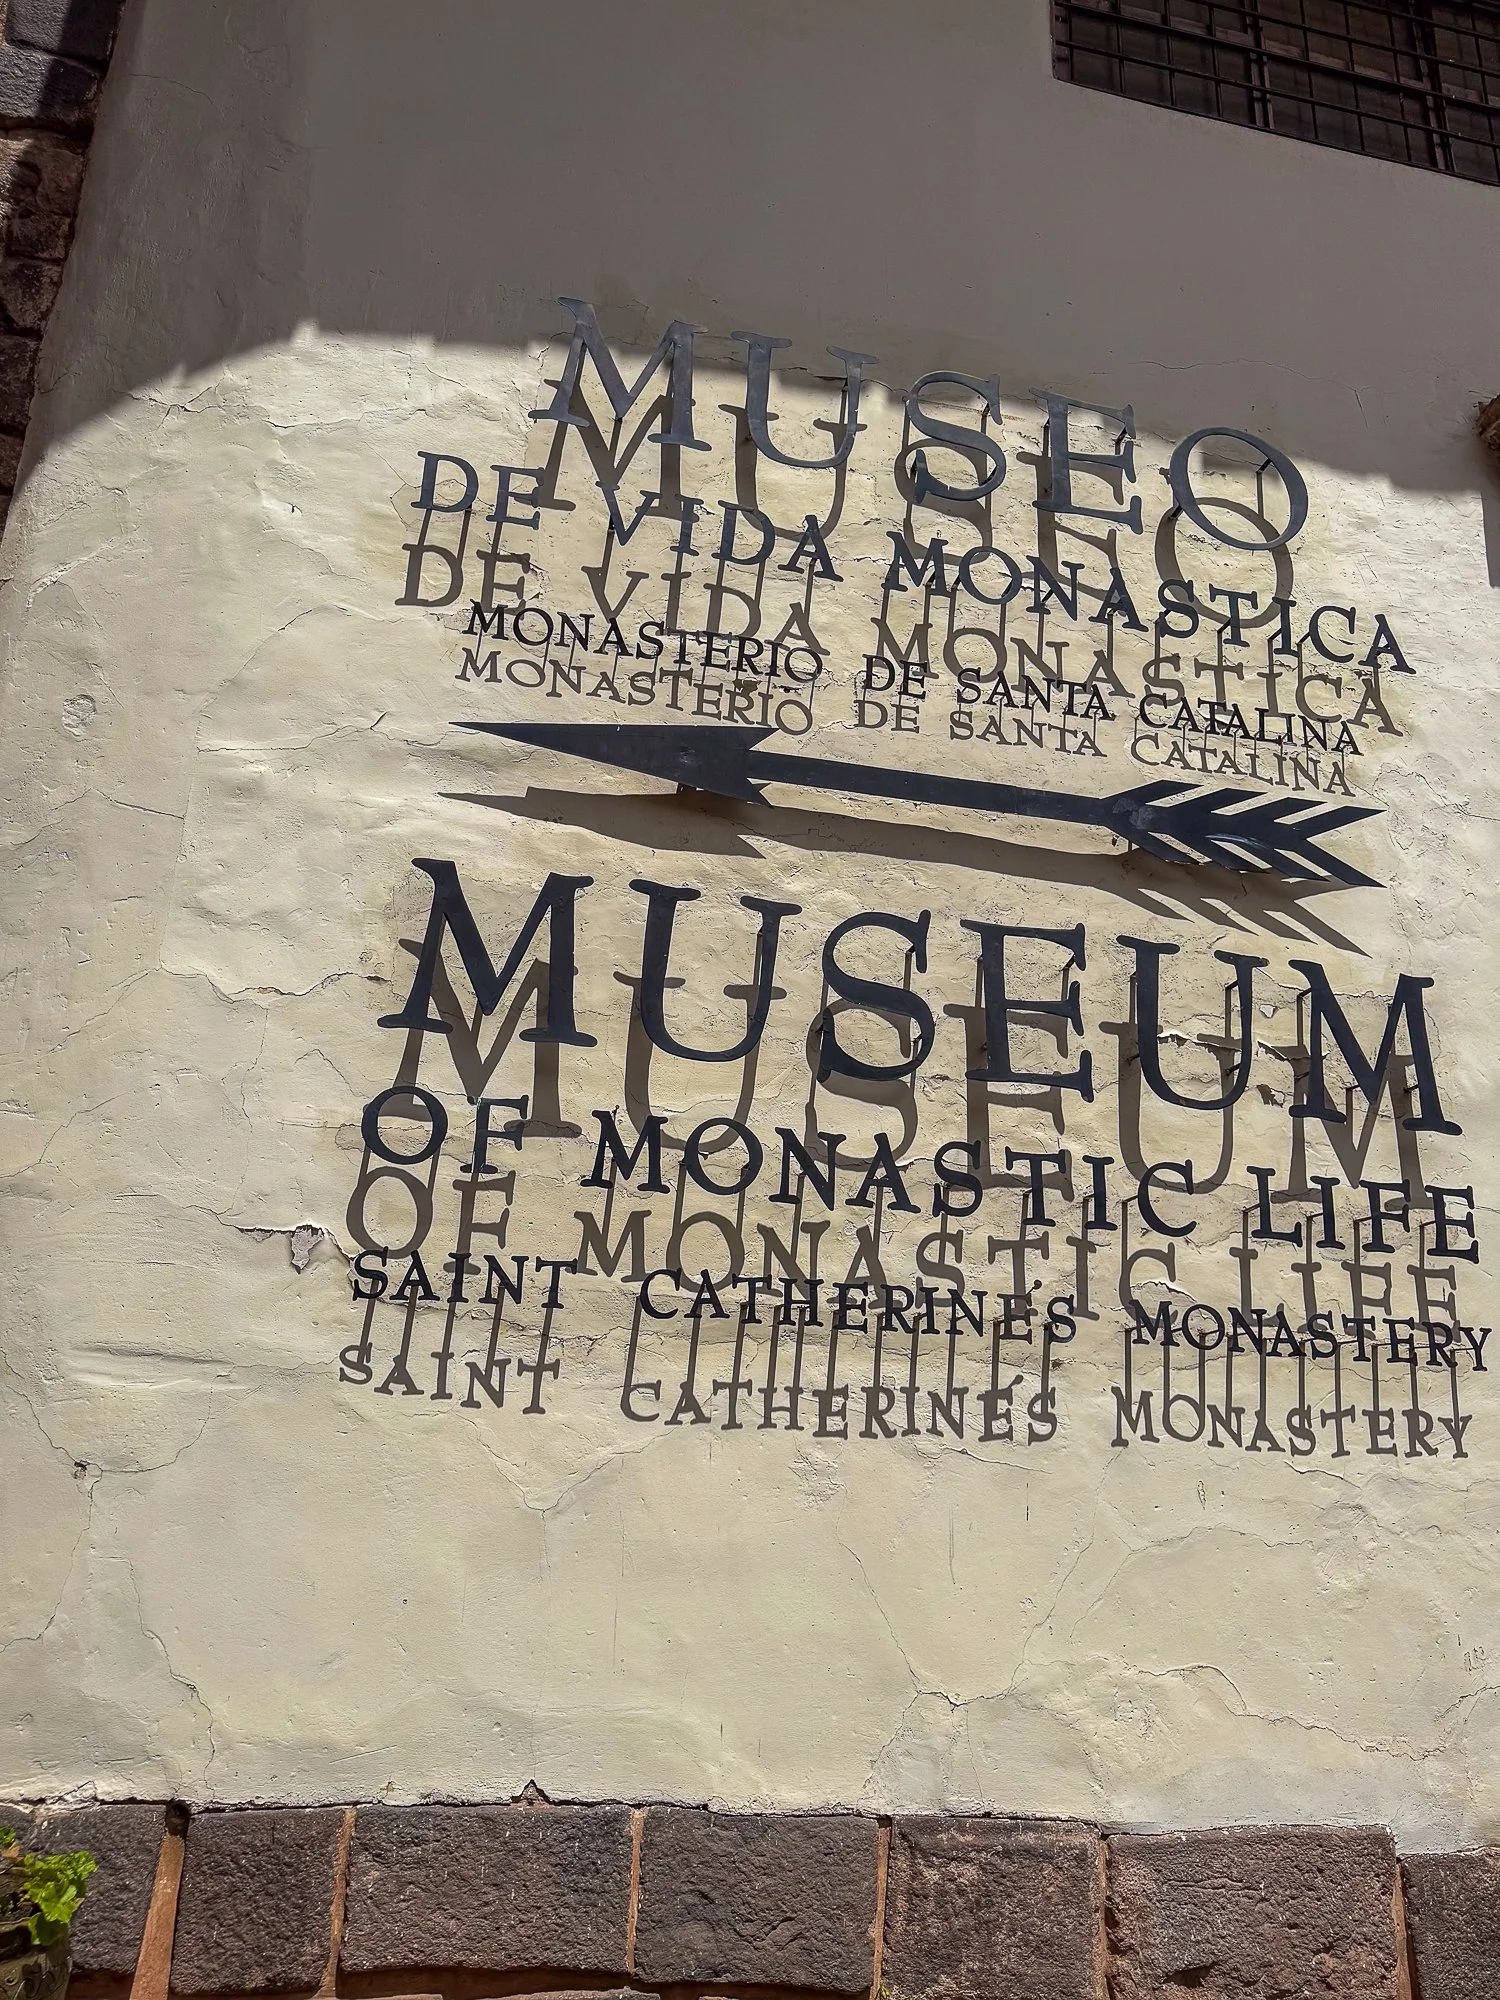 MUSEO
DE VIDA MONASTICA
MONASTERIO DE SANTA CATALINA
MUSEUM
OF MONASTIC LIFE
SAINT CATHERINE'S MONASTERY